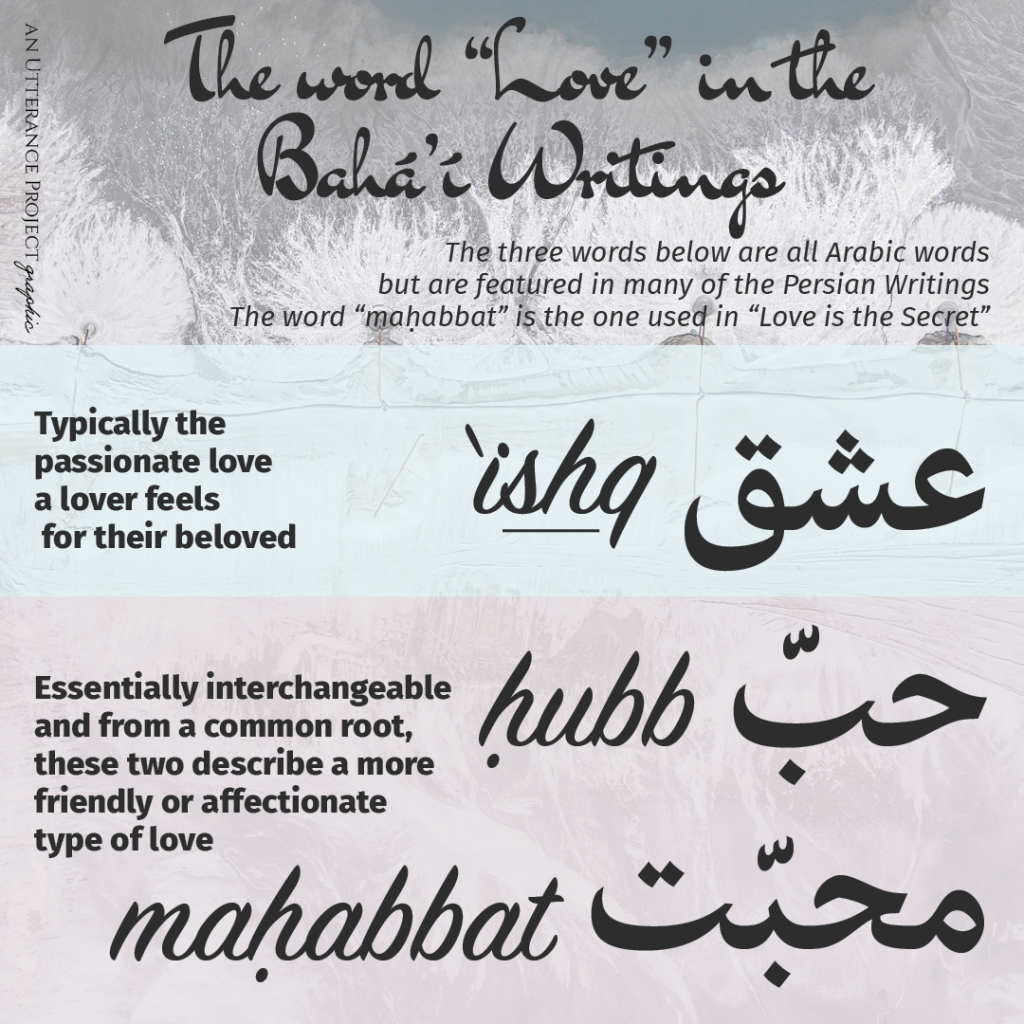 AN UTTERANCE PROJECT graphic
The word “Love” in the
Bahá’í Writings
The three words below are all Arabic words
but are featured in many of the Persian Writings
The word “maḥabbat” is the one used in “Love is the Secret”
Typically the
passionate love
a lover feels
for their beloved
‵is͟hq عشق
Essentially interchangeable
and from a common root,
these two describe a more
friendly or affectionate
type of love
ḥubb حبّ
maḥabbat محبّت